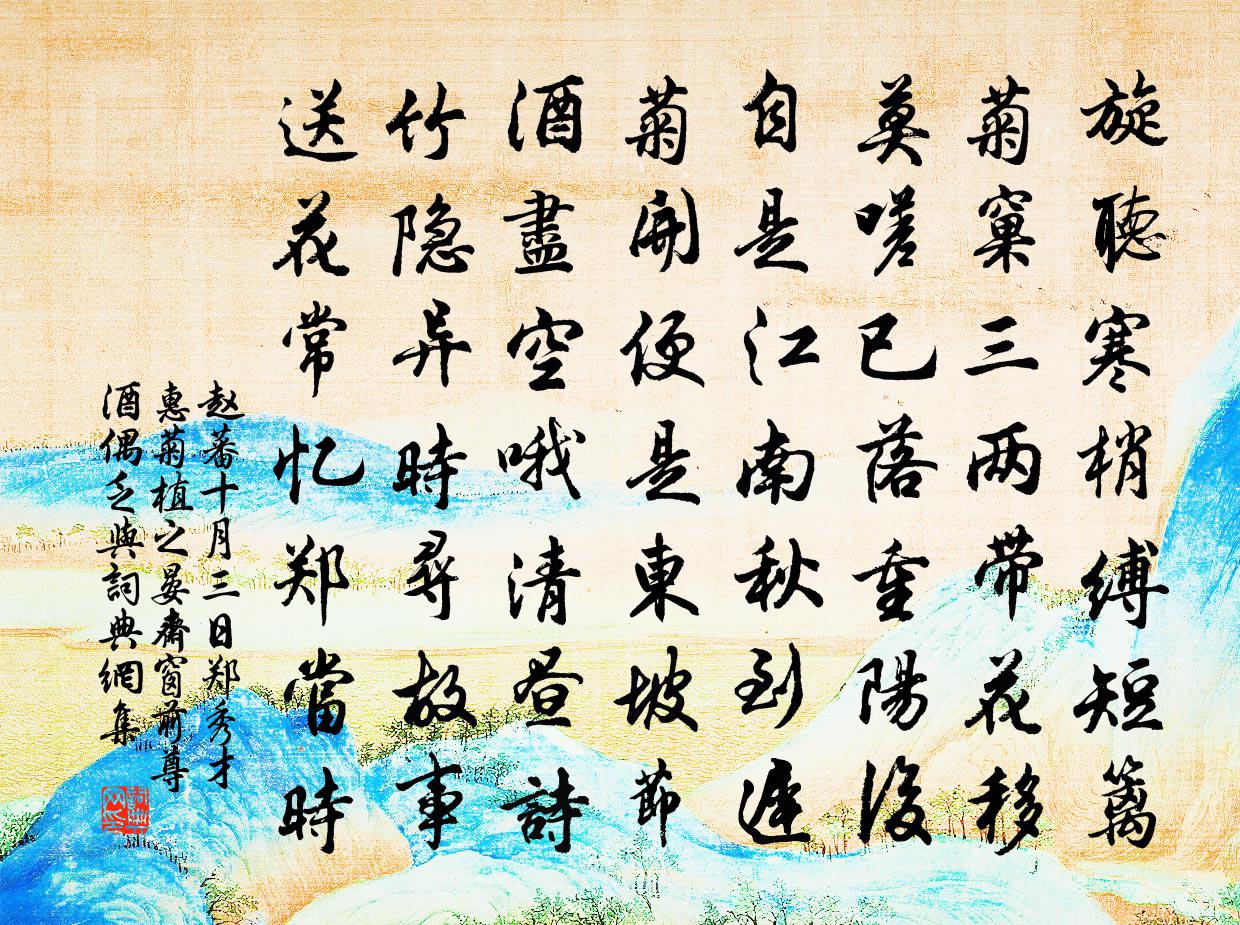 旋聽寒梢縛短篱
菊窠三两带花移
莫嗟已落重陽後
自是江南秋到遲
菊開便是東坡節
酒盡空哦清昼詩
竹隐异時尋故事
送花常忆郑當時
赵蕃十月三日郑秀才
惠菊植之晏齋窗前尊
酒偶乏與詞典網集